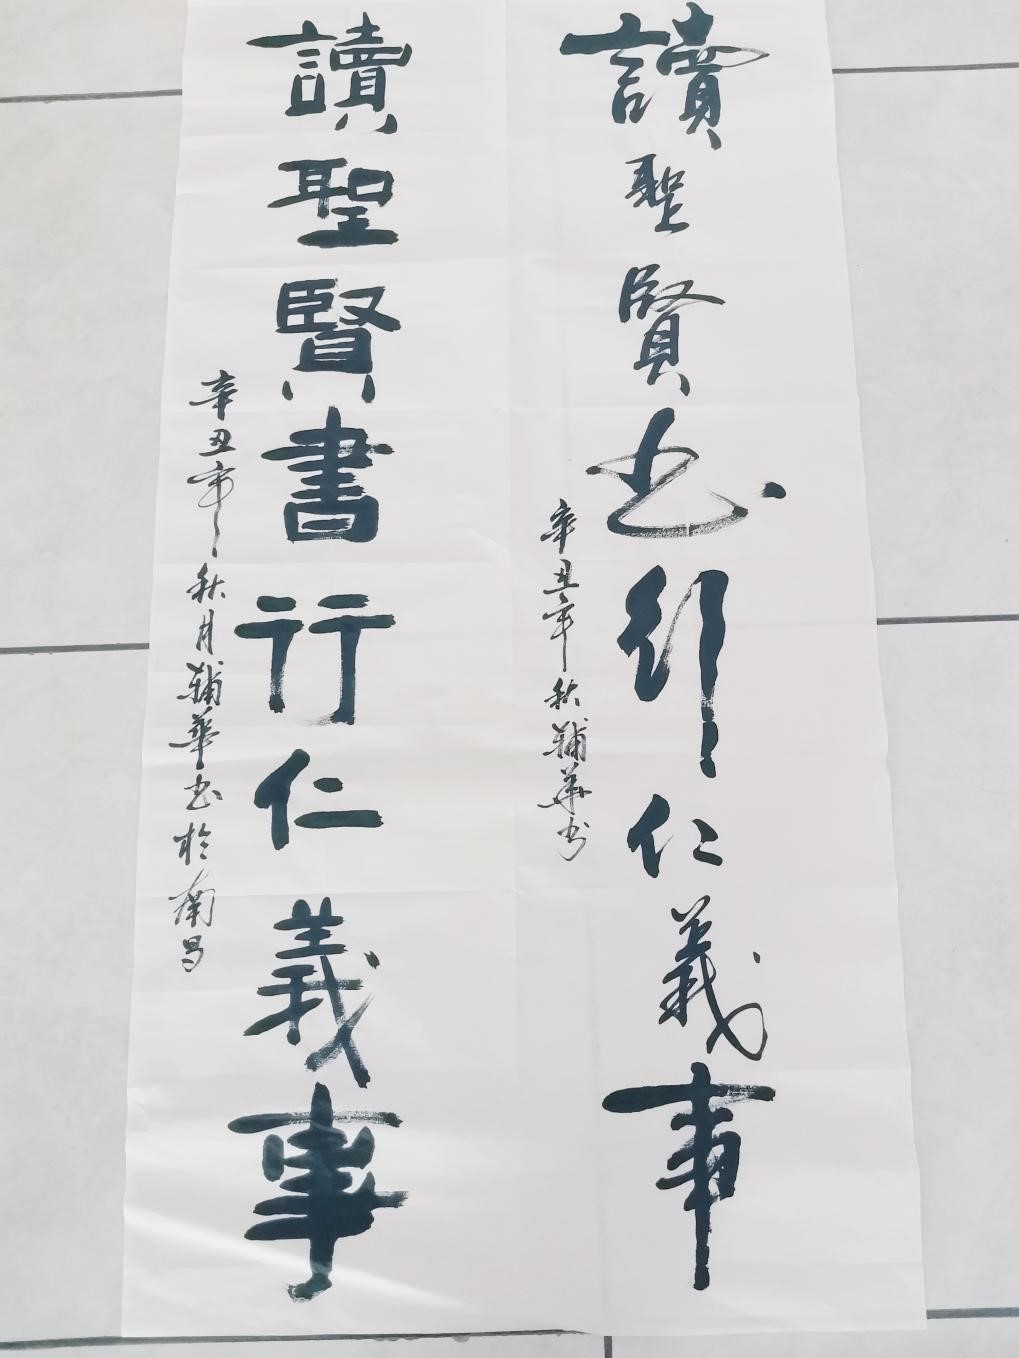 讀聖賢书行仁義事
辛丑年秋輔華书
讀聖賢書行仁義事
辛丑年秋月輔華书於南昌